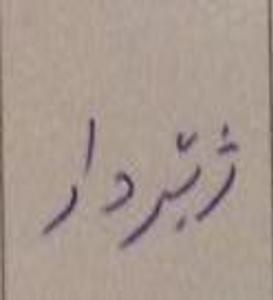 ژێردار